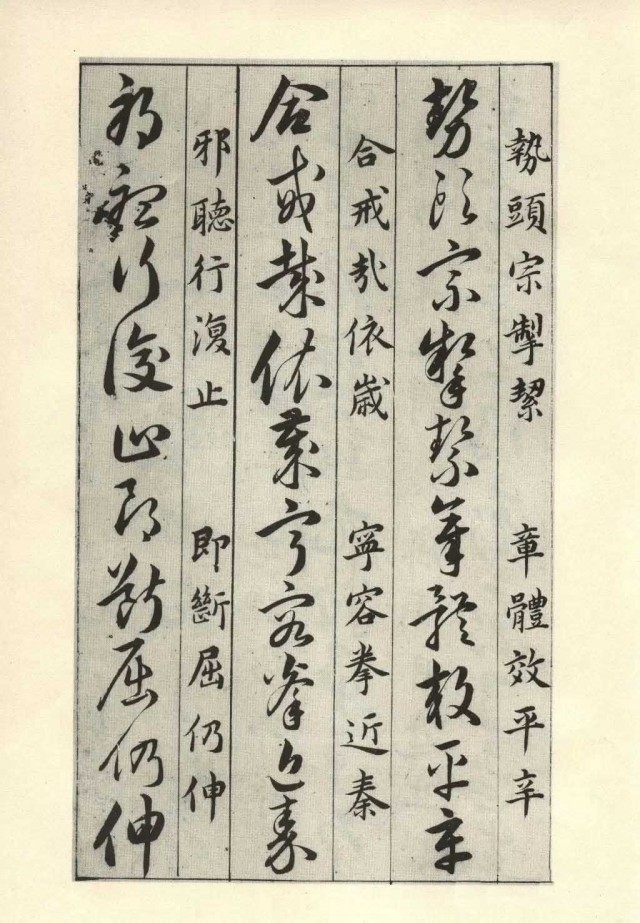 執頭宗掣絜 章體效平辛
勢頭宗掣絜章體效平辛
合戒𢦏依歲 寧容拳近秦
合戒哉依歲寧容拳近秦
邪聽行復止 即斷屈仍伸
邪聽行復止即斷屈仍伸